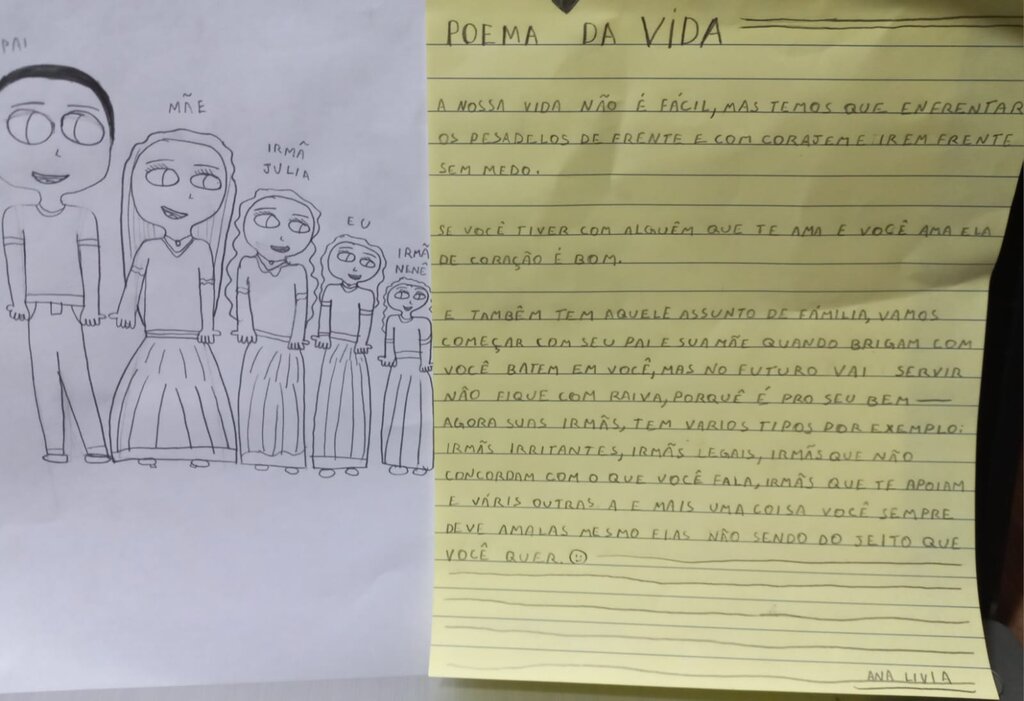 PAI
MÃE
IRMÃ
JULIA
EU
IRMÃ
NENÊ
POEMA DA VIDA
A NOSSA VIDA NÃO É FÁCIL, MAS TEMOS QUE ENFRENTAR
OS PESADELOS DE FRENTE E COM CORAJEM E IR EM FRENTE
SEM MEDO.
SE VOCÊ TIVER COM ALGUÉM QUE TE AMA E VOCÊ AMA ELA
DE CORAÇÃO É BOM.
E TAMBÊM TEM AQUELE ASSUNTO DE FÁMILIA, VAMOS
COMEÇAR COM SEU PAI E SUA MÃE QUANDO BRIGAM COM
VOCÊ BATEM EM VOCÊ, MAS NO FUTURO VAI SERVIR
NÃO FIQUE COM RAIVA, PORQUÊ É PRO SEU BEM —
AGORA SUAS IRMÃS, TEM VARIOS TIPOS POR EXEMPLO:
IRMÃS IRRITANTES, IRMÃS LEGAIS, IRMÃS QUE NÃO
CONCORDAM COM O QUE VOCÊ FALA, IRMÃS QUE TE APOIAM
E VÁRIS OUTRAS A E MAIS UMA COISA VOCÊ SEMPRE
DEVE AMALAS MESMO ELAS NÃO SENDO DO JEITO QUE
VOCÊ QUER. ☺
ANA LIVIA